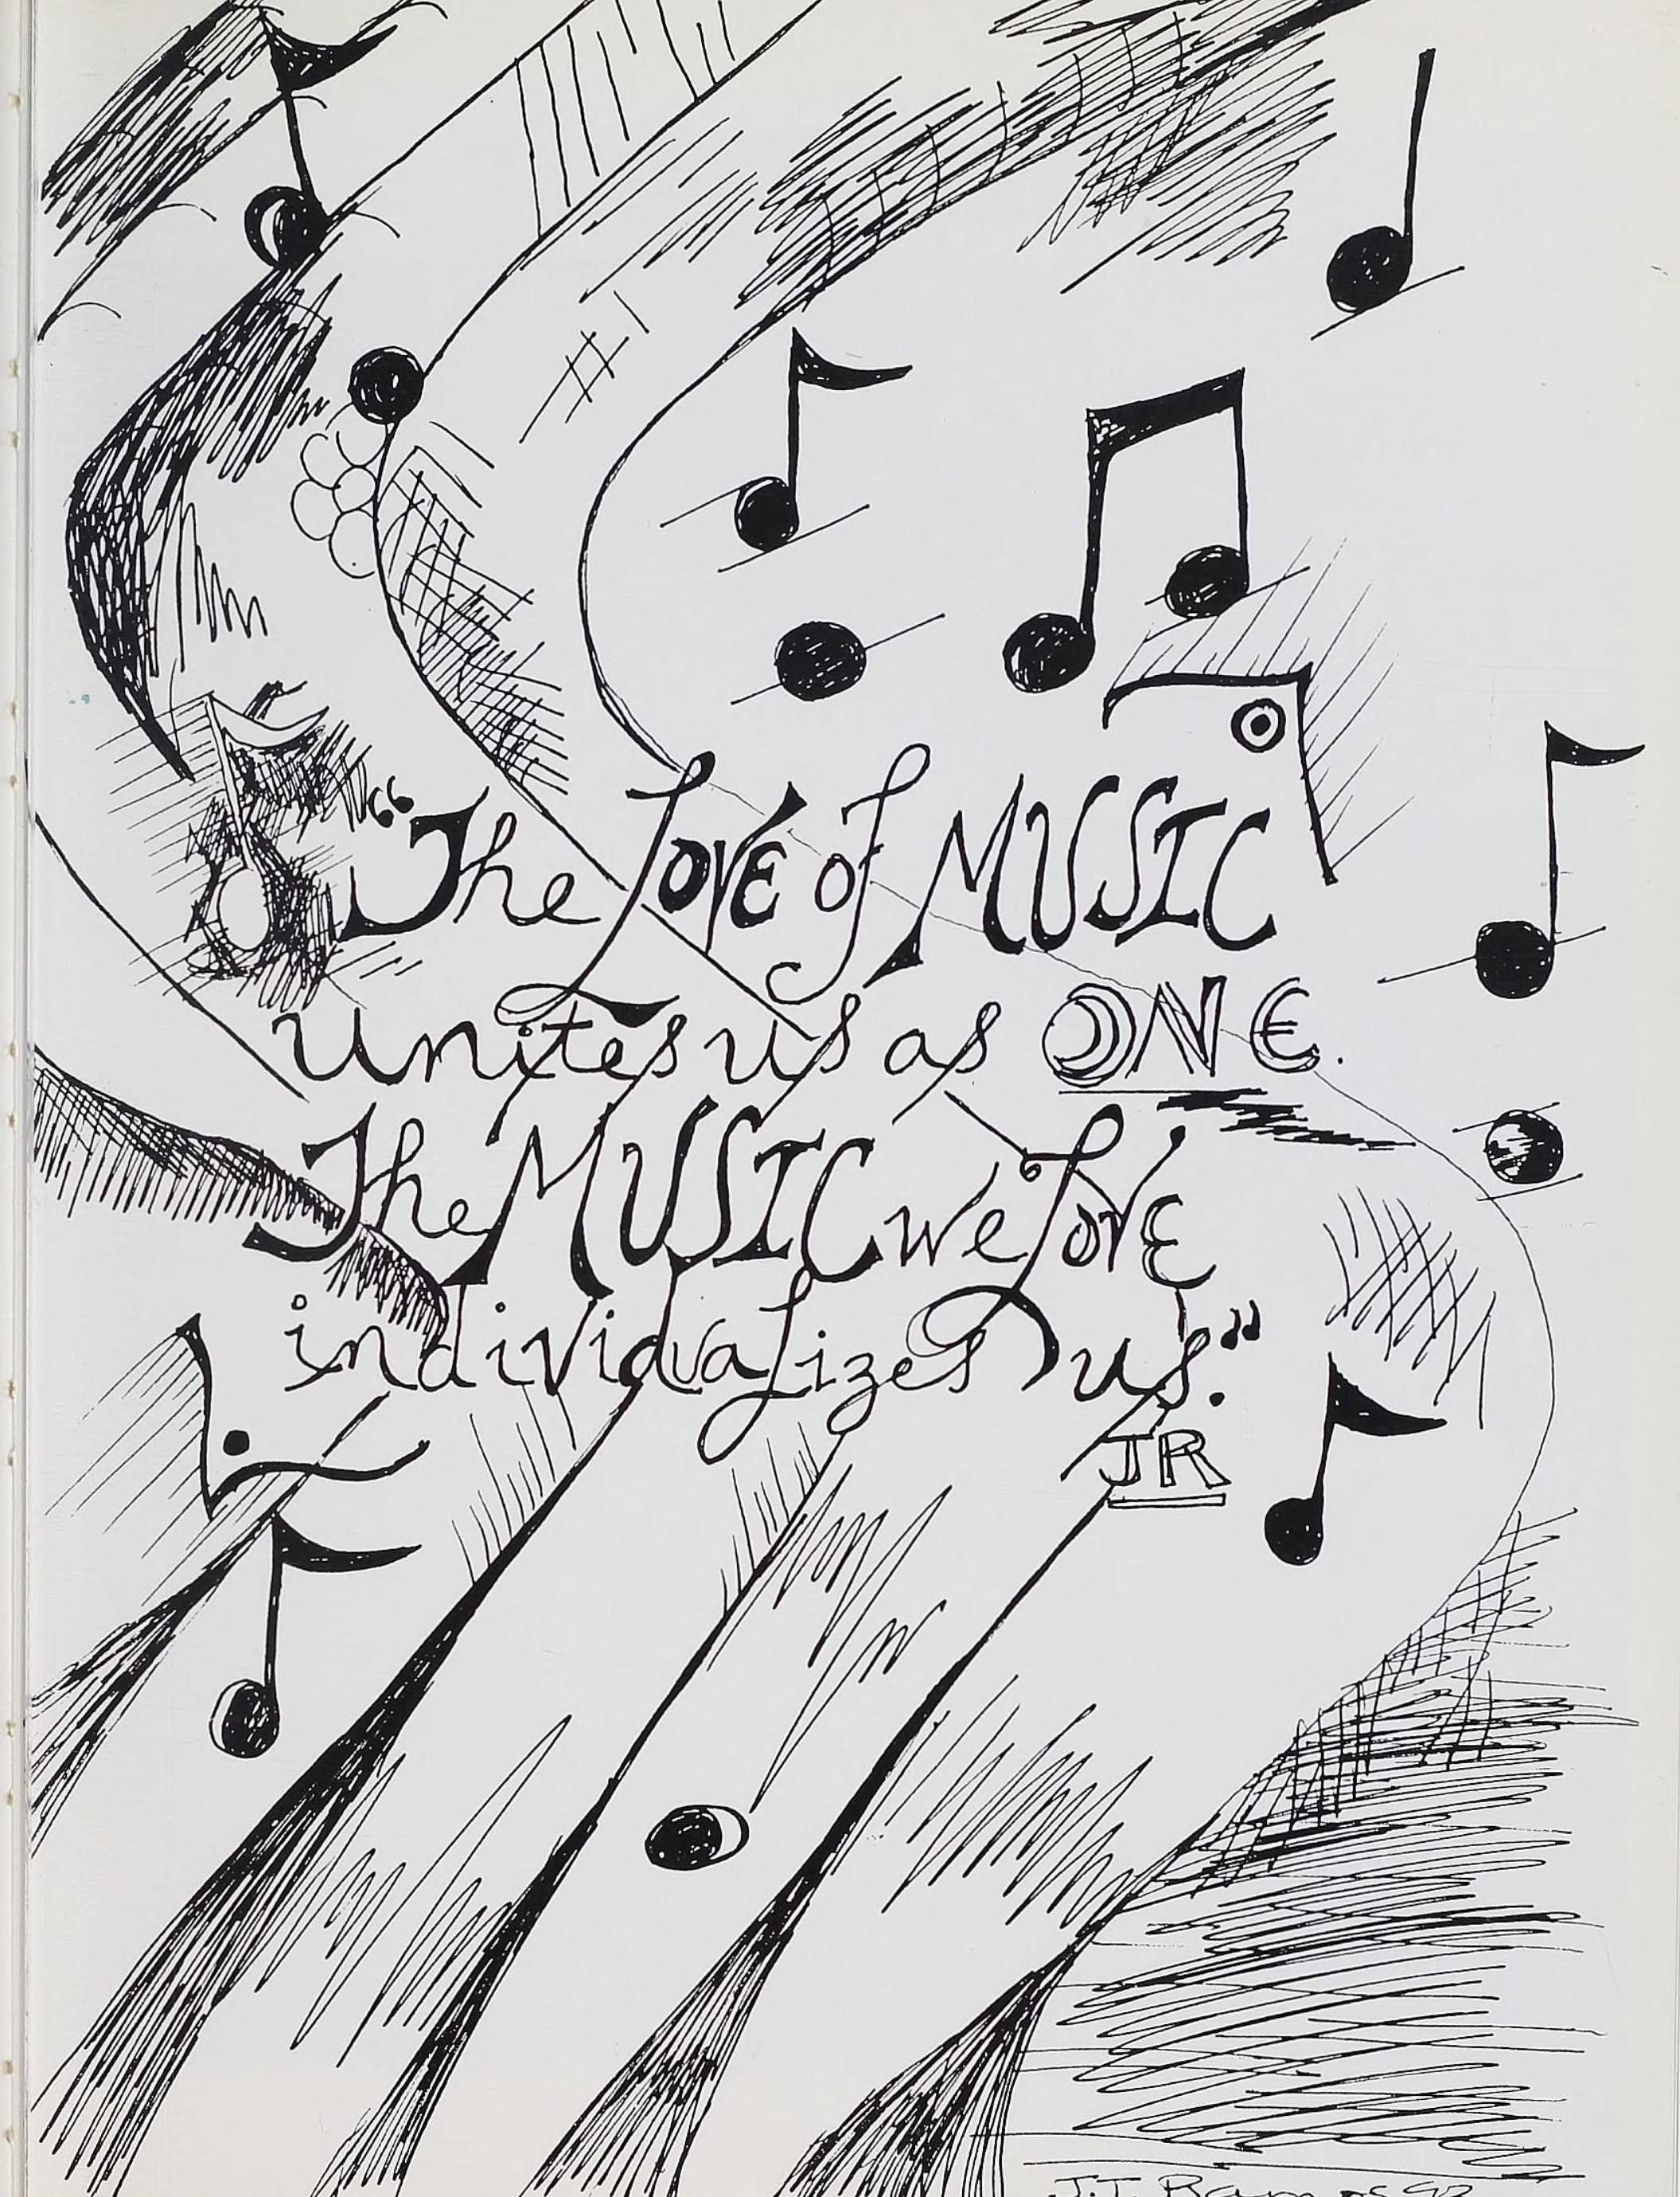 “The Love of MUSIC
unites us as ONE.
The MUSIC we Love
individualizes us.”
JR
J.T. Ramos 92